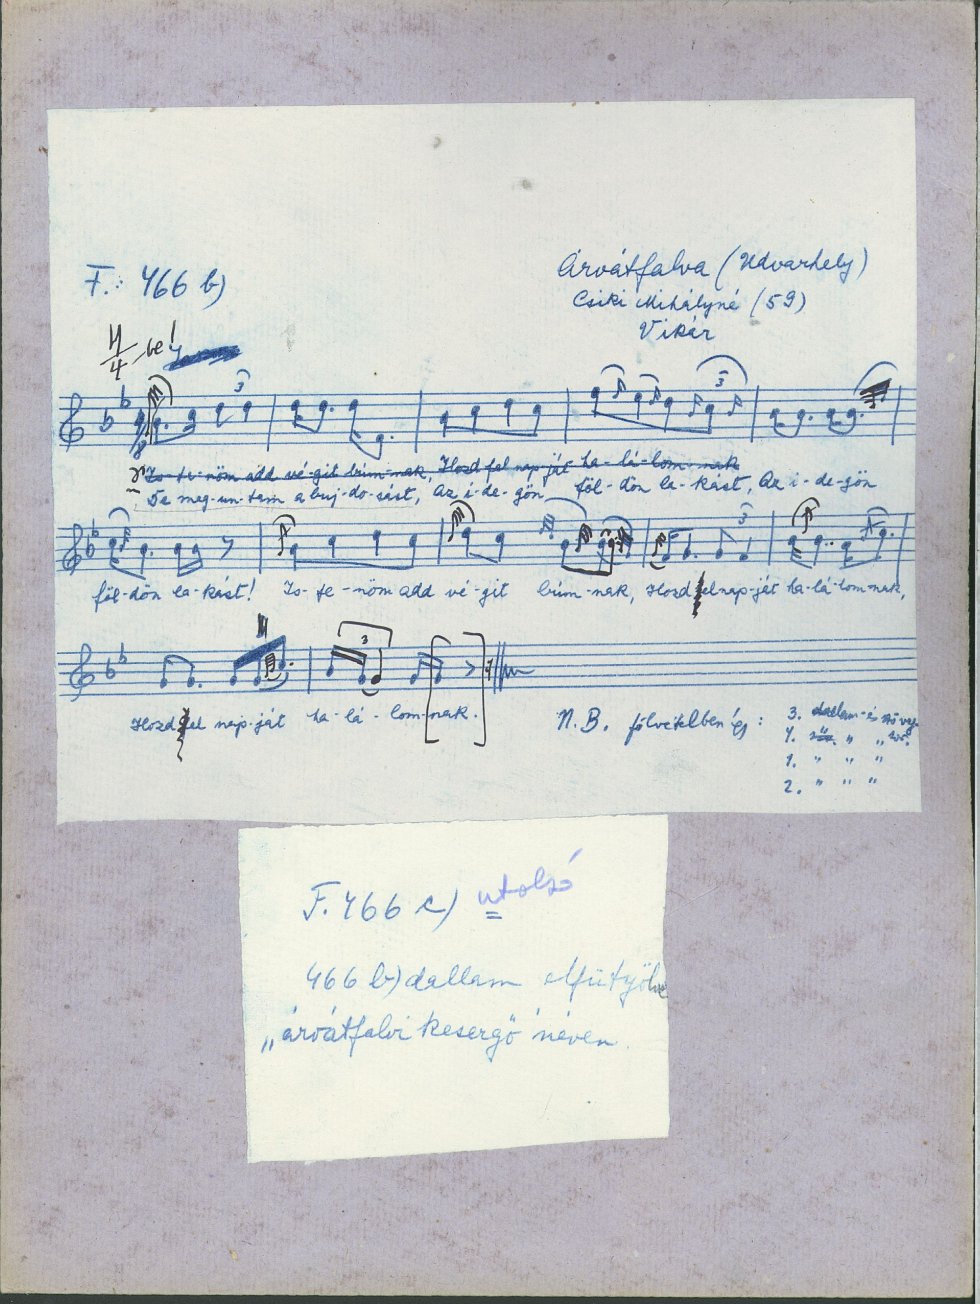 F.: 466 b)
Árvátfalva (Udvarhely)
Csiki Mihályné (59)
Vikár
4/4 -be!
3 3
Is-te-nöm add vé-git búm-nak, Hozd fel nap-ját ha-lá-lom-nak
De meg-un-tam a buj-do-sást, Az i-de-gön föl-dön la-kást, Az i-de-gön
3
föl-dön la-kást! Is-te-nöm add vé-git búm-nak, Hozd elnap-ját ha-lá-lom-nak,
3
Hozd el nap-ját ha-lá-lom-nak.
N.B. fölvételben így: 3. dallam-és
4. " "
1. " " "
2. " " "
F. 466 c) utolsó
466 b) dallam elfütyölve
„árvátfalvi kesergő" néven.